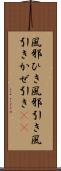 風邪ひき風邪引き風
引きかぜ引き((